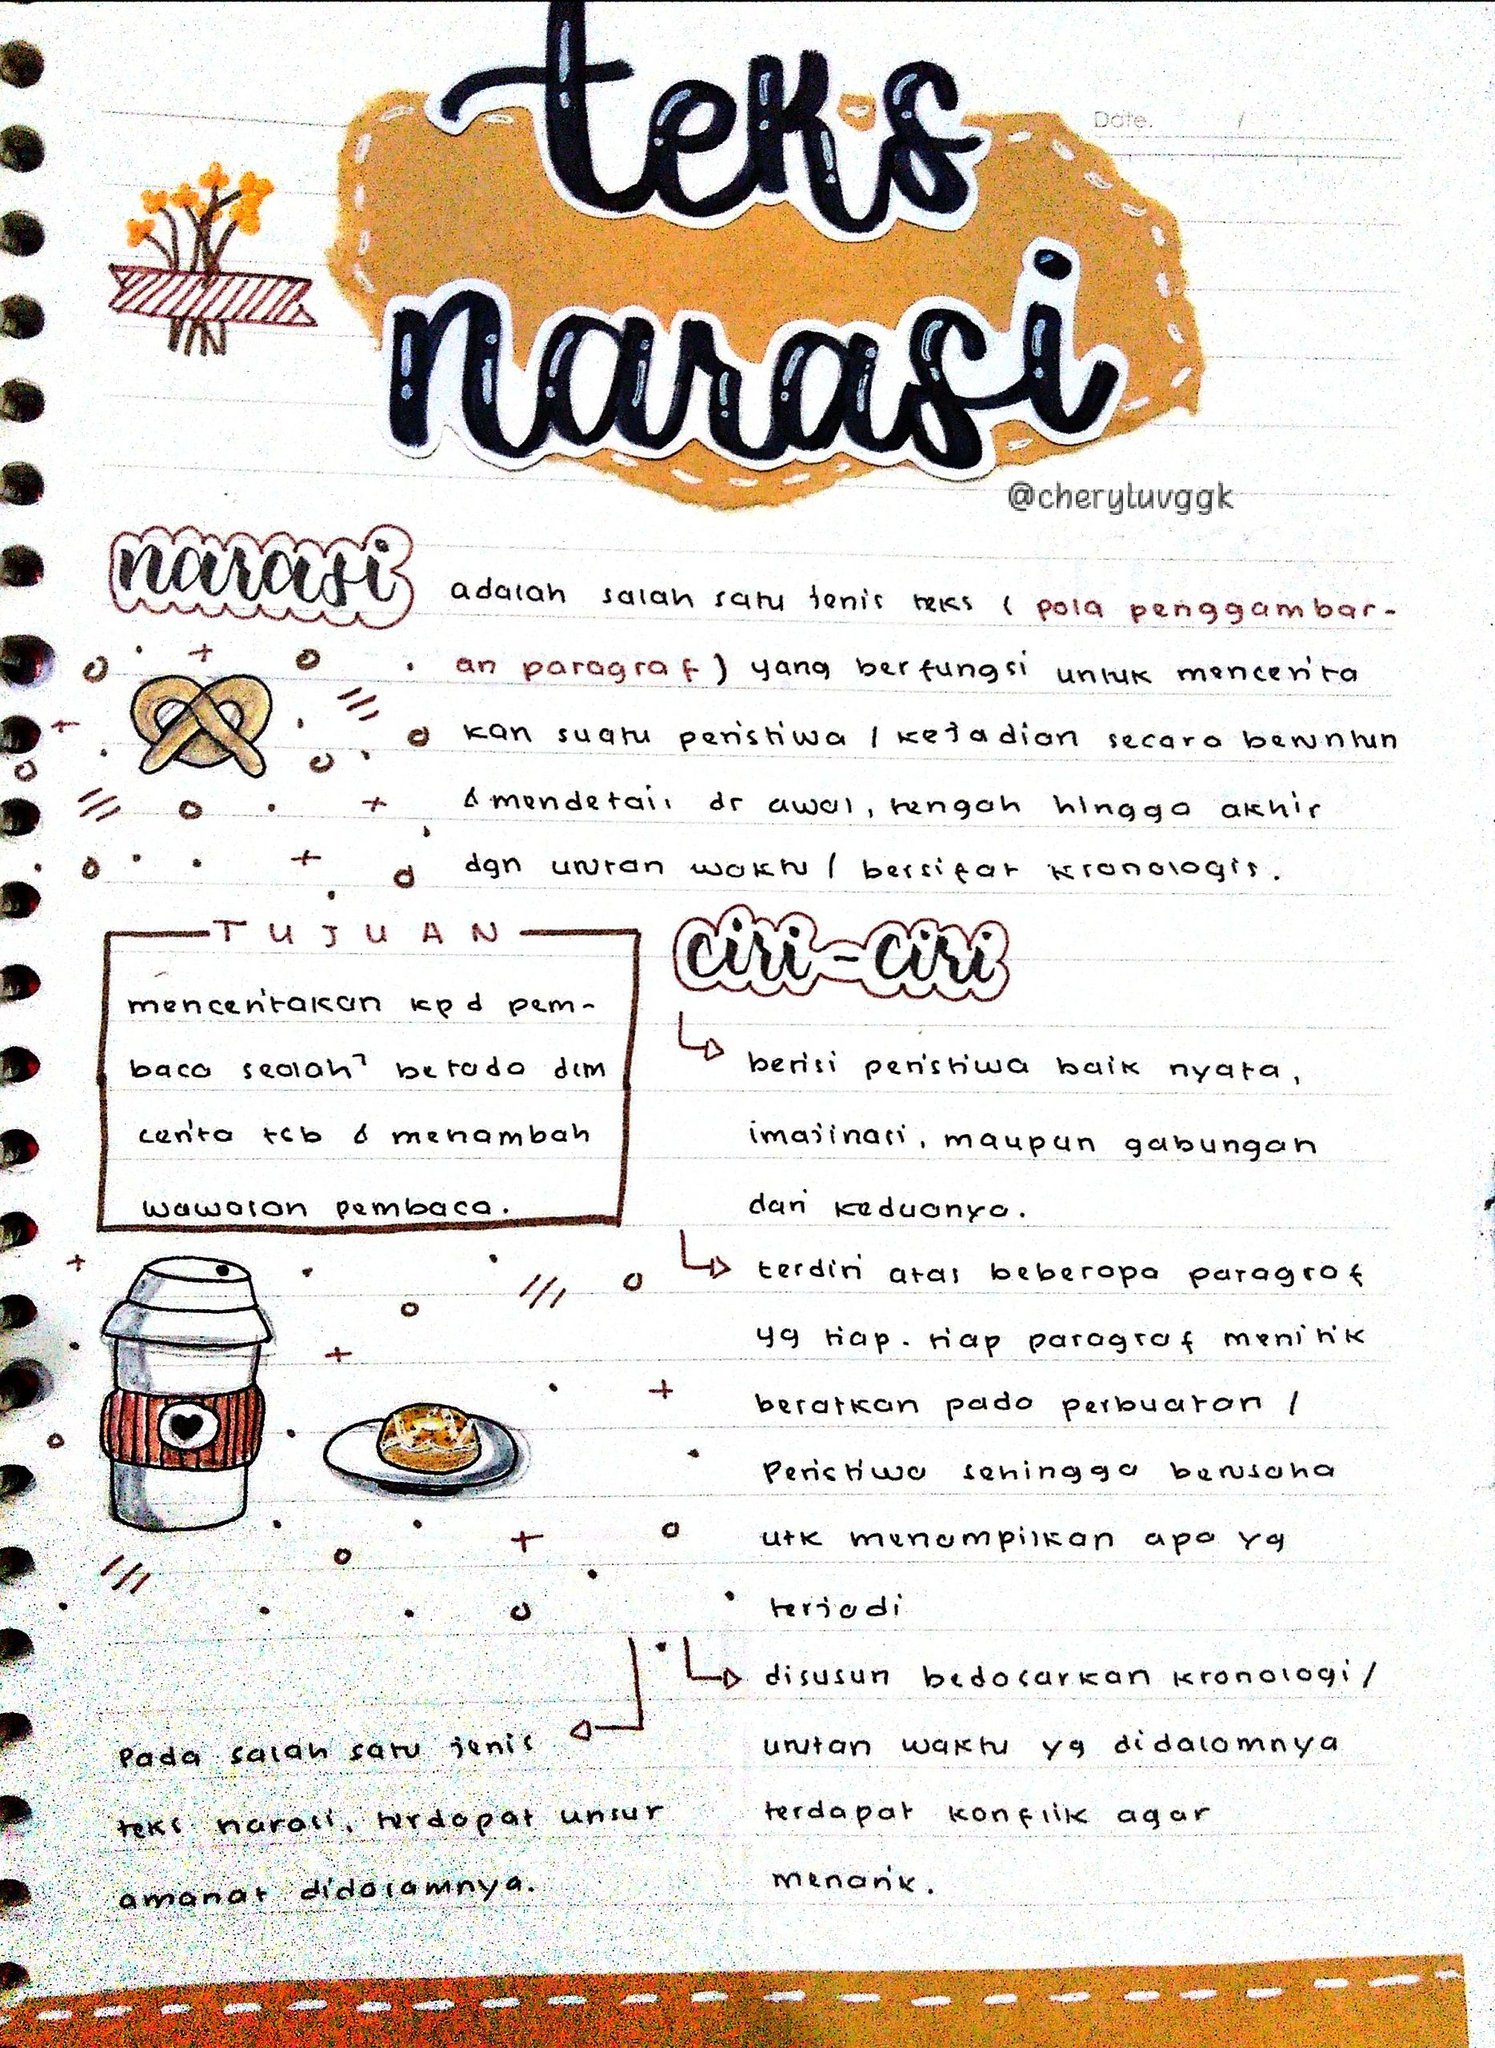 teks
narasi
Date. /
@cheryluvggk
narasi adalah salah satu jenis teks ( pola penggambar-
an paragraf ) yang berfungsi untuk mencerita
kan suatu peristiwa / kejadian secara beruntun
& mendetail dr awal, tengah hingga akhir
dgn urutan waktu / bersifat kronologis.
TUJUAN
menceritakan kpd pem-
baca seolah² berada dlm
cerita tsb & menambah
wawasan pembaca.
ciri-ciri
berisi peristiwa baik nyata,
imajinasi, maupun gabungan
dari keduanya.
terdiri atas beberapa paragraf
yg tiap-tiap paragraf menitik
beratkan pada perbuatan /
Peristiwa sehingga berusaha
utk menampilkan apa yg
terjadi
disusun bedasarkan kronologi /
urutan waktu yg didalamnya
terdapat konflik agar
menarik.
Pada salah satu jenis
teks narasi, terdapat unsur
amanat didalamnya.